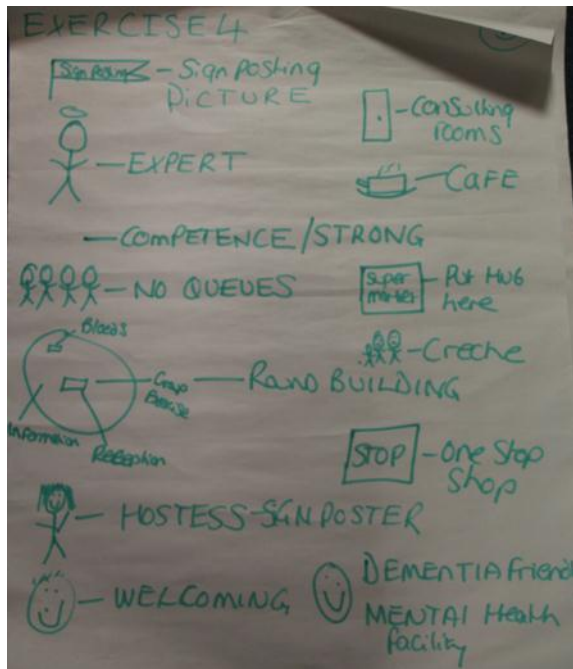 EXERCISE 4
Sign Posting - Sign Posting
PICTURE
- Consulting
rooms
- EXPERT
- CAFE
- COMPETENCE/STRONG
- NO QUEUES
super
market
- Put HUB
here
Bloods
- Creche
Group
Exercise
- ROUND BUILDING
Information
Reception
STOP
- One Stop
Shop
- HOSTESS-SIGNPOSTER
- WELCOMING
DEMENTIA Friend
MENTAl Health
facility